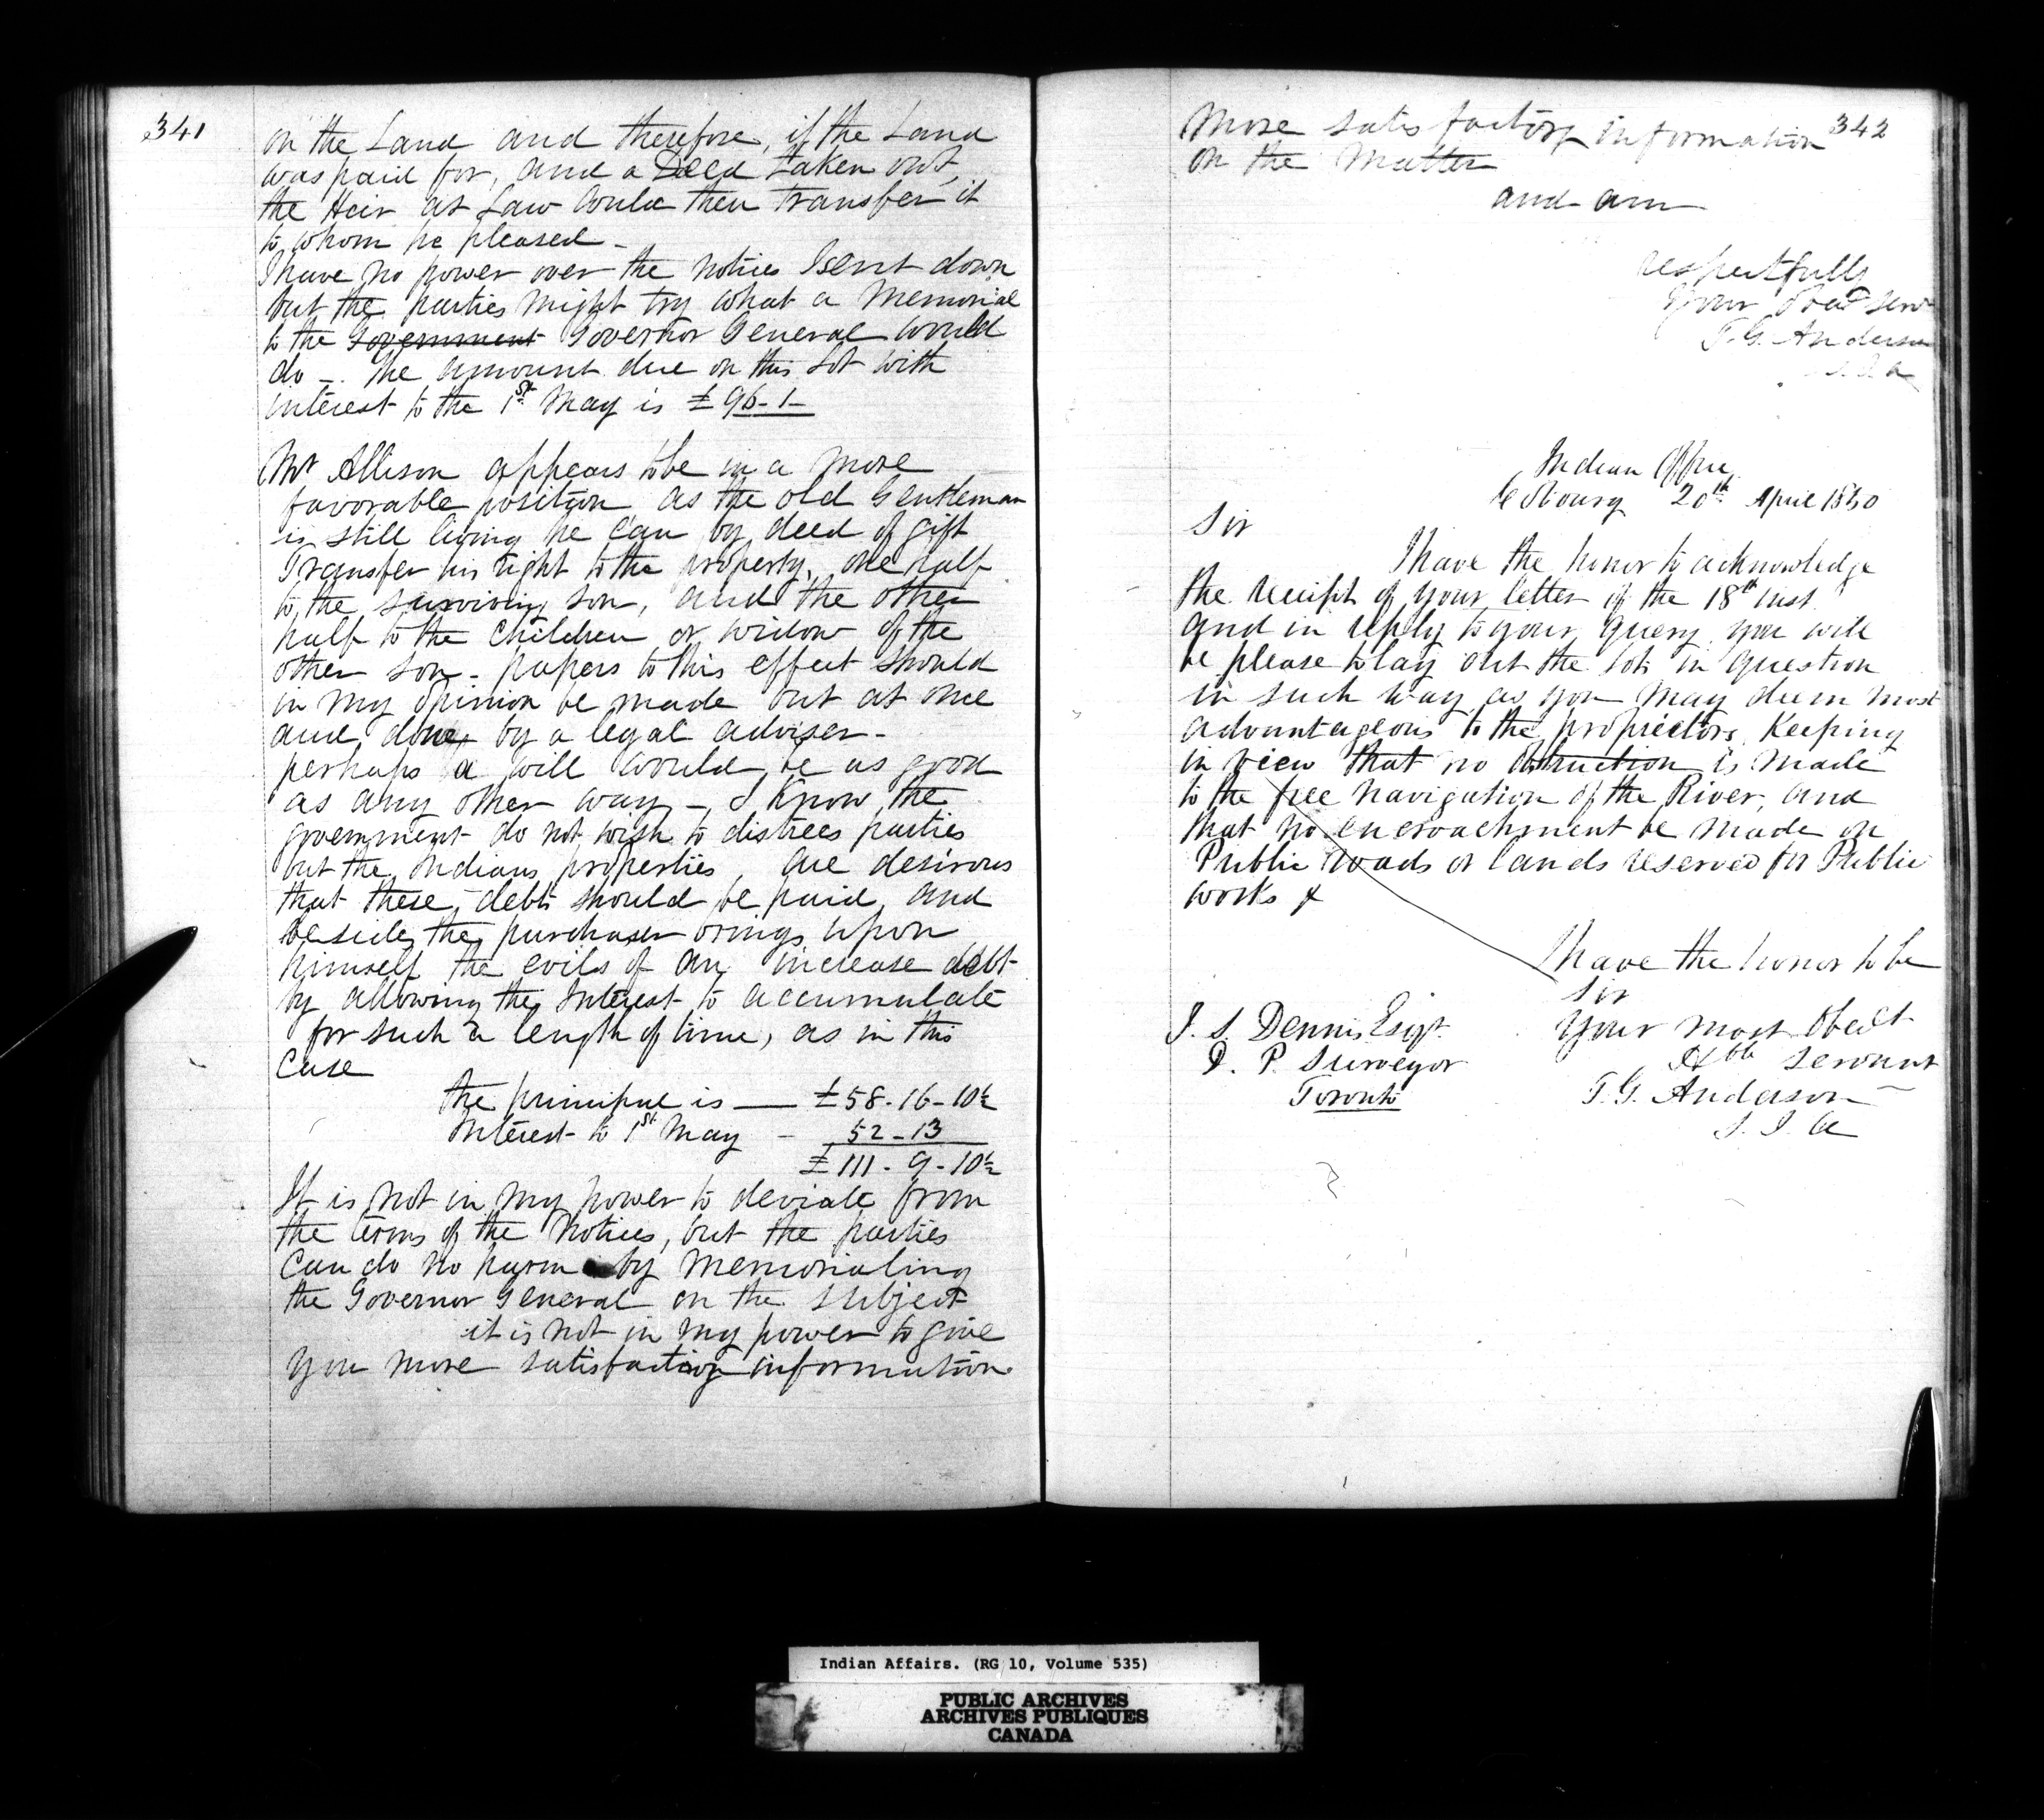 341
on the Land and therefore, if the Land
was paid for, and a Deed taken out,
the Heir at Law could then transfer it
to whom he pleased -
I have no power over the notices I sent down
but the parties might try what a Memorial
to the Government Governor General would
do -. the amount due on this Lot with
interest to the 1st May is £96-1-
Mr Allison appears to be in a more
favorable position as the old Gentleman
is still living he can by deed of gift
Transfer his right to the property, one half
to the surviving son, and the other
half to the children or widow of the
other son - papers to this effect should
in my opinion be made out at once
and done by a legal adviser -
perhaps a will would be as good
as any other way -, I know the
government do not wish to distress parties
but the Indians properties, are desirous
that these debts should be paid, and
beside the purchaser brings upon
himself the evils of an increase debt
by allowing the Interest to accumulate
for such a length of time, as in this
Case
the principal is — £58-16-10½
Interest to 1st May - 52-13
£111-9-10½
It is not in my power to deviate from
the terms of the Notices, but the parties
Can do no harm by Memorialing
the Governor General on the subject
it is not in my power to give
you more satisfactory information
342
More satisfactory information
on the Matter
and am
respectfully
Your Obed Serv
T. G. Anderson
S.I.A
Indian Office
Cobourg 20th April 1850
Sir
I have the honor to acknowledge
the receipt of your letter of the 18th inst
and in reply to your query you will
be please to lay out the lots in question
in such way as you may deem most
advantageous to the proprietors, Keeping
in view that no obstruction is made
to the free navigation of the River, and
that no encroachment be made on
Public roads or lands reserved for Public
works &
I have the honor to be
Sir
Your most Obedt
Hble servant
T. G. Anderson
S. I. A
J. S. Dennis Esqr.
D. P. Surveyor
Toronto
Indian Affairs. (RG 10, Volume 535)
PUBLIC ARCHIVES
ARCHIVES PUBLIQUES
CANADA